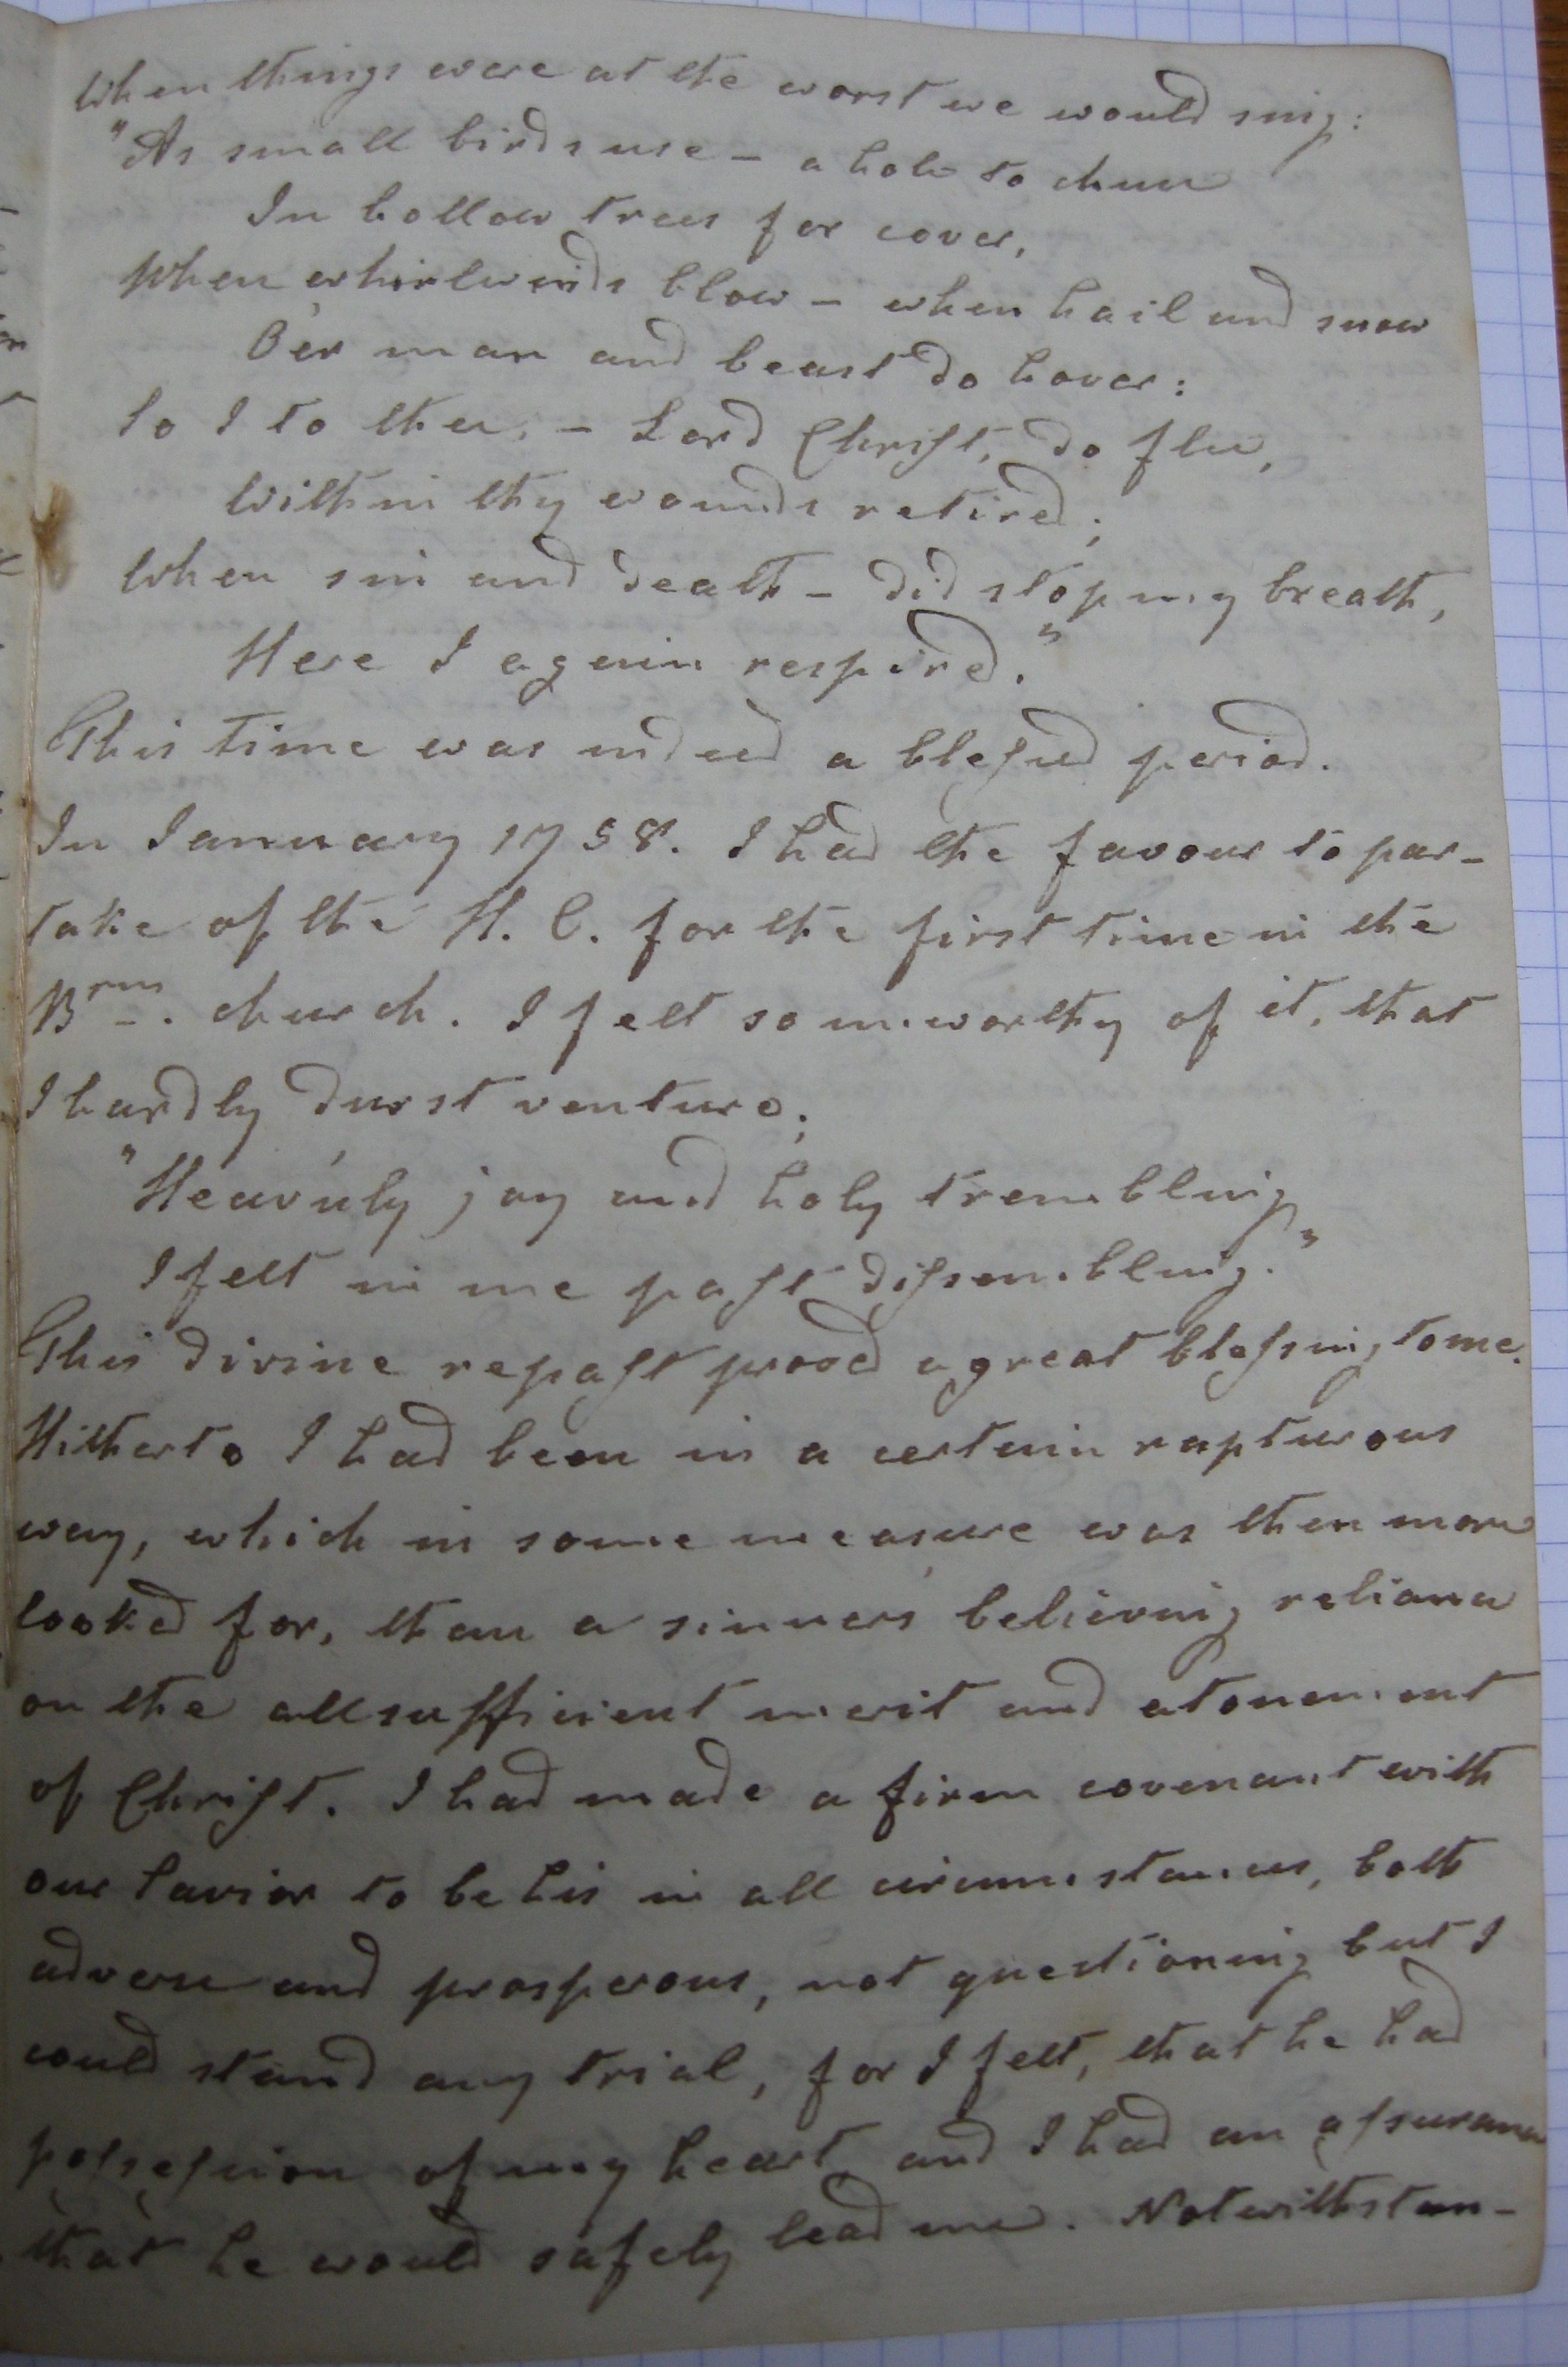 When things were at the worst we would sing:
"As small birds use – a hole to chuse
In hollow trees for cover,
When whirlwinds blow – when hail and snow
O'er man and beast do hover:
So I to thee, – Lord Christ, do flee,
Within thy wounds retired;
When sin and death – did stop my breath,
Here I again respired."
This time was indeed a blessed period.
In January 1758. I had the favour to par-
take of the H. C. for the first time in the
Brns. church. I felt so unworthy of it, that
I hardly durst venture;
"Heav'nly joy and holy trembling
I felt in me past dissembling."
This divine repast prood a great blessing to me.
Hitherto I had been in a certain rapturous
way, which in some measure was then more
looked for, than a sinners' believing reliance
on the allsufficient merit and atonement
of Christ. I had made a firm covenant with
our Savior to be his in all circumstances, both
adverse and prosperous, not questioning but I
could stand any trial, for I felt, that he had
possession of my heart and I had an assurance
that he would safely lead me. Notwithstan-